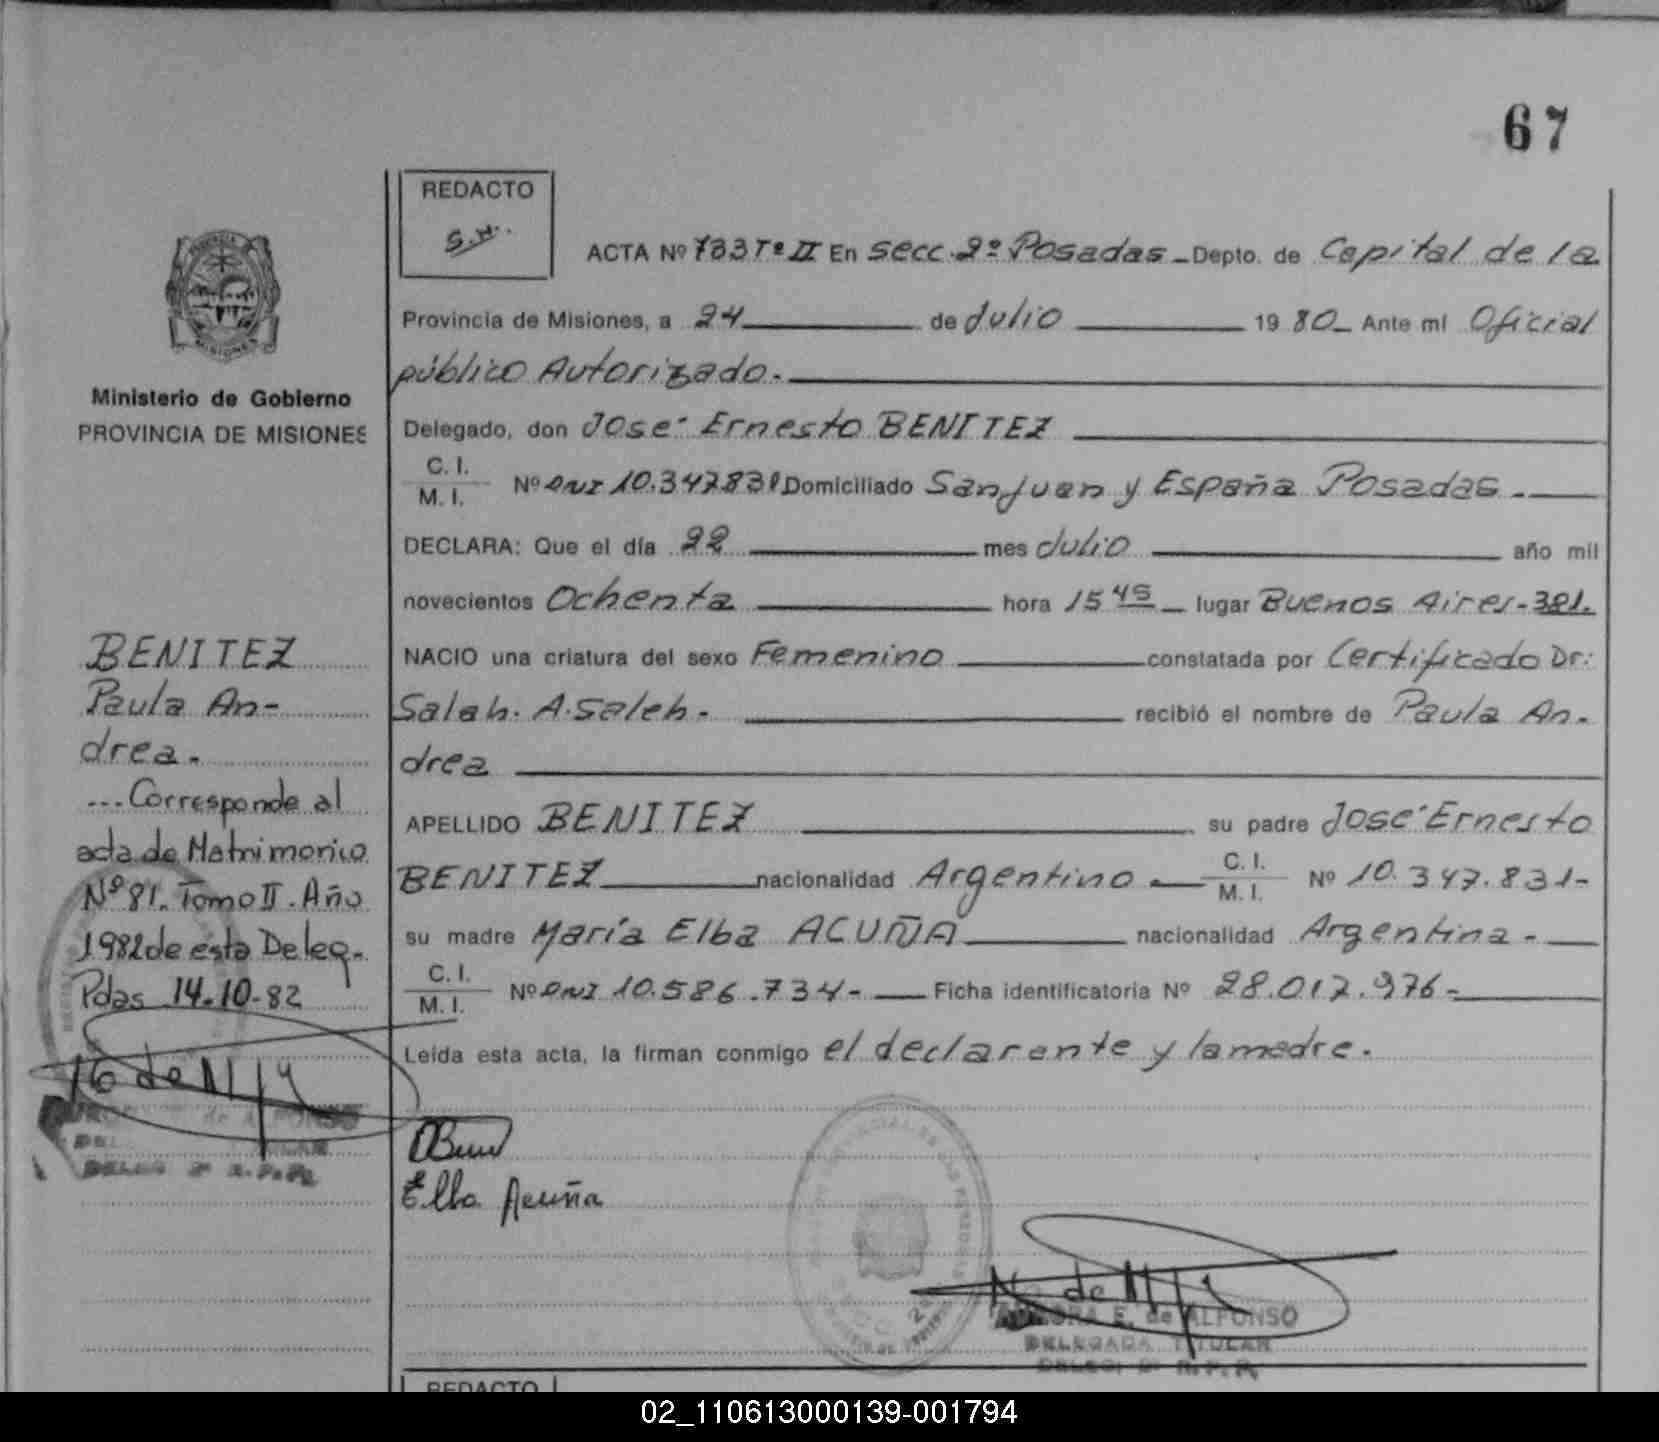 67
REDACTO
S.N..
ACTA Nº 733 Tº II En secc. 2º Posadas - Depto. de Capital de la
Provincia de Misiones, a 24 de Julio 19 80 - Ante mí Oficial
público Autorizado.
Delegado, don José Ernesto BENITEZ
C. I.
M. I. Nº DNI 10.347.831 Domiciliado San Juan y España Posadas -
DECLARA: Que el día 22 mes Julio año mil
novecientos Ochenta hora 15 45 - lugar Buenos Aires - 381.
NACIO una criatura del sexo Femenino constatada por Certificado Dr:
Salah. A. Saleh. - recibió el nombre de Paula An-
drea
APELLIDO BENITEZ su padre José Ernesto
BENITEZ nacionalidad Argentino - C. I.
M. I. Nº 10.347.831-
su madre María Elba ACUÑA nacionalidad Argentina -
C. I.
M. I. Nº DNI 10.586.734- Ficha identificatoria Nº 28.017.976-
Leída esta acta, la firman conmigo el declarante y la madre.
Elba Acuña
E. de ALFONSO
DELEGADA TITULAR
DELEG. 2ª R.P.P.
REDACTO
PROVINCIA
MISIONES
Ministerio de Gobierno
PROVINCIA DE MISIONES
BENITEZ
Paula An-
drea.
...Corresponde al
acta de Matrimonio
Nº 81. Tomo II. Año
1982 de esta Deleg.
Pdas 14-10-82
de ALFONSO
02_110613000139-001794